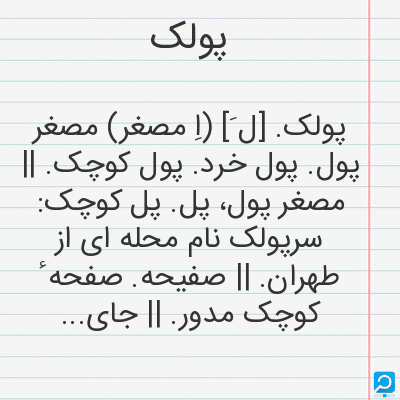 پولک
پولک. [ل َ] (اِ مصغر) مصغر
پول. پول خرد. پول کوچک. ||
مصغر پول، پل. پل کوچک:
سرپولک نام محله ای از
طهران. || صفیحه. صفحه ٔ
کوچک مدور. || جای...